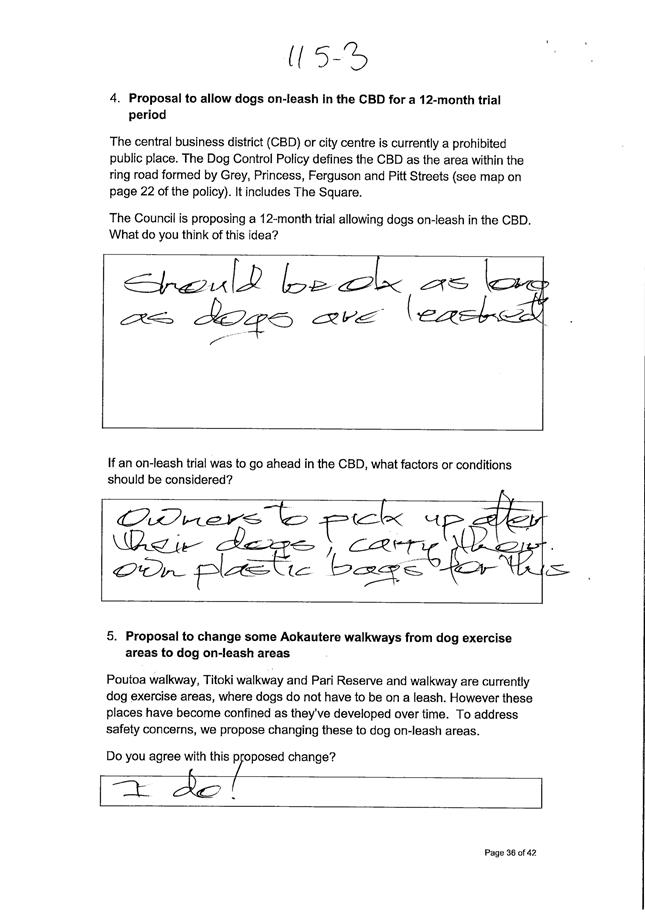 115-3
4. Proposal to allow dogs on-leash in the CBD for a 12-month trial
period
The central business district (CBD) or city centre is currently a prohibited
public place. The Dog Control Policy defines the CBD as the area within the
ring road formed by Grey, Princess, Ferguson and Pitt Streets (see map on
page 22 of the policy). It includes The Square.
The Council is proposing a 12-month trial allowing dogs on-leash in the CBD.
What do you think of this idea?
Should be ok as long
as dogs are leashed
If an on-leash trial was to go ahead in the CBD, what factors or conditions
should be considered?
Owners to pick up after
their dogs, carry their
own plastic bags for this
5. Proposal to change some Aokautere walkways from dog exercise
areas to dog on-leash areas
Poutoa walkway, Titoki walkway and Pari Reserve and walkway are currently
dog exercise areas, where dogs do not have to be on a leash. However these
places have become confined as they've developed over time. To address
safety concerns, we propose changing these to dog on-leash areas.
Do you agree with this proposed change?
I do!
Page 36 of 42